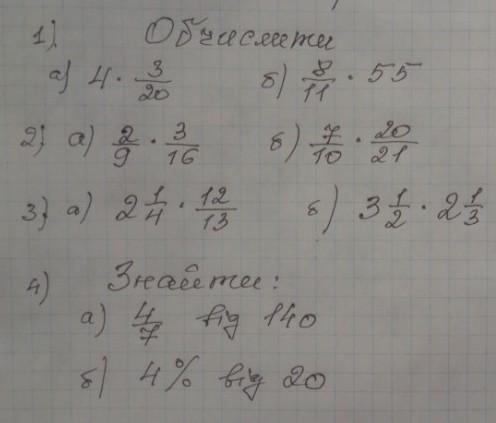 1). Обчислити
а) 4 · 3/20 б) 8/11 · 55
2) а) 2/9 · 3/16 б) 7/10 · 20/21
3) а) 2 1/4 · 12/13 б) 3 1/2 · 2 1/3
4) Знайти:
а) 4/7 від 140
б) 4% від 20